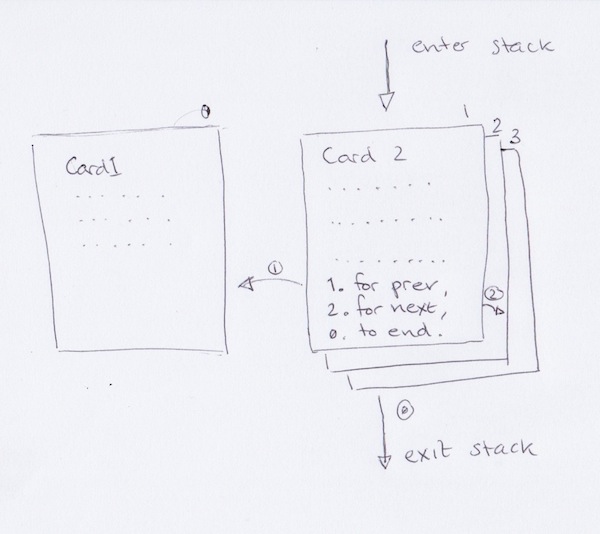 enter stack
1
2
3
Card 1
Card 2
1. for prev,
2. for next,
0. to end.
1
2
0
exit stack